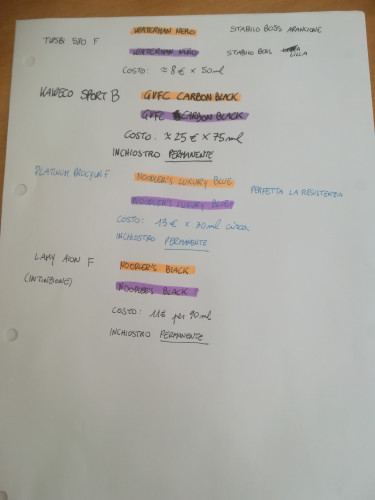 TWSBI 580 F WATERMAN NERO STABILO BOSS ARANCIONE
WATERMAN NERO STABILO BOSS LILLA
COSTO: ≈ 8€ x 50ml
KAWECO SPORT B GVFC CARBON BLACK
GVFC CARBON BLACK
COSTO: ≈ 25€ x 75ml
INCHIOSTRO PERMANENTE
PLATINUM PROCYON F NOODLER'S LUXURY BLUE PERFETTA LA RESISTENZA
NOODLER'S LUXURY BLUE
COSTO: 13€ x 30ml circa
INCHIOSTRO PERMANENTE
LAMY AION F NOODLER'S BLACK
(INTINZIONE) NOODLER'S BLACK
COSTO: 11€ per 90ml
INCHIOSTRO PERMANENTE